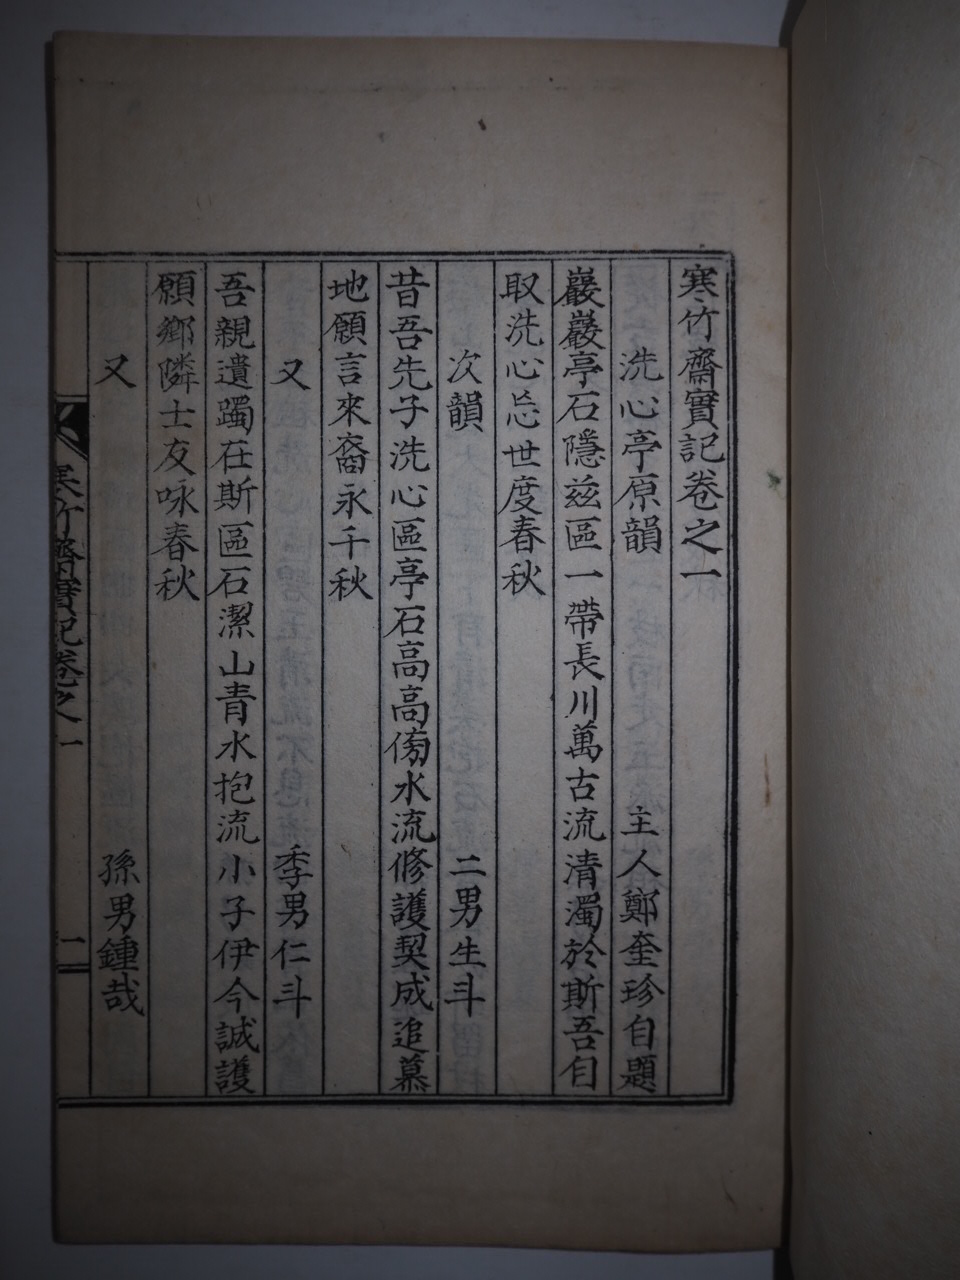 寒竹齋實記卷之一
洗心亭原韻 主人鄭奎珍自題
巖巖亭石隱玆區一帶長川萬古流清濁於斯吾自
取洗心忘世度春秋
次韻 二男生斗
昔吾先子洗心區亭石高高傍水流修護契成追慕
地願言來裔永千秋
又 季男仁斗
吾親遺躅在斯區石潔山青水抱流小子伊今誠護
願鄉隣士友咏春秋
又 孫男鍾哉
寒竹齋實記卷之一 一